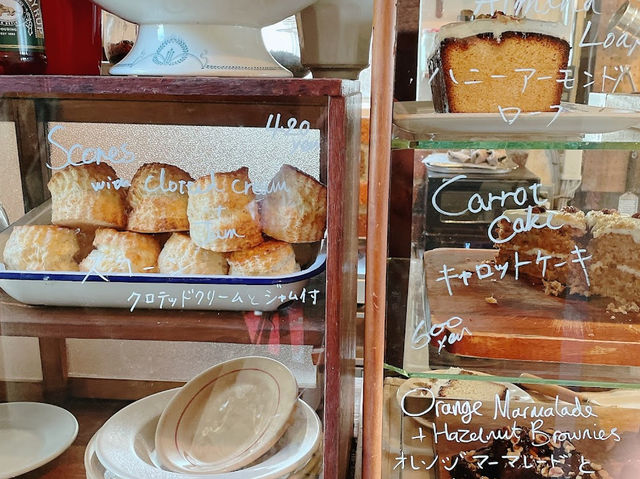 Scones
480
yen
with clotted cream
+
Jam
スコーン
クロテッドクリームとジャム付
Almond
Loaf
ハニーアーモンド
ローフ
Carrot
Cake
キャロットケーキ
600
yen
Orange Marmalade
+ Hazelnut Brownies
オレンジマーマレードと